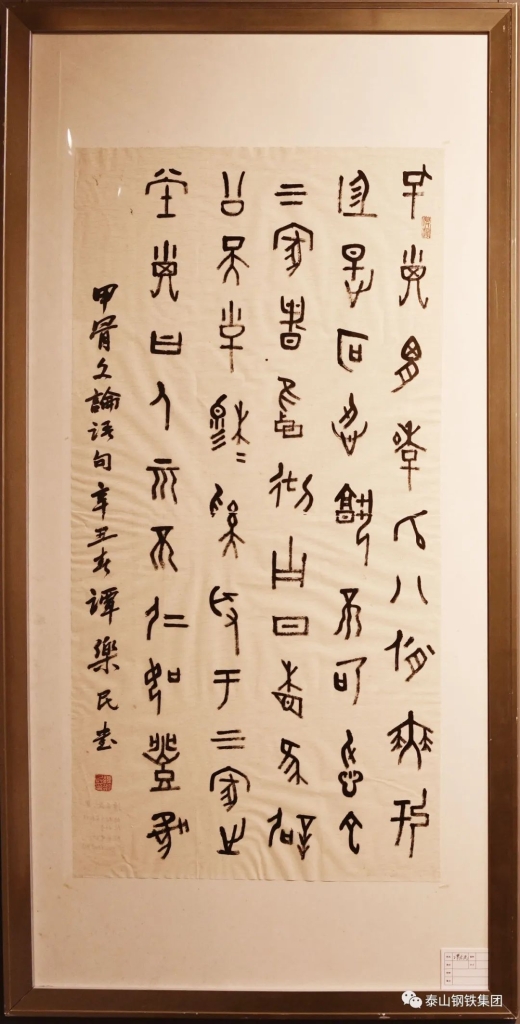 孔子謂季氏八佾舞於
庭是可忍孰不可忍也
三家者以雍徹子曰相維辟
公天子穆〻奚取于三家之
堂子曰人而不仁如禮何
甲骨文論語句辛丑春譚樂民書
泰山钢铁集团